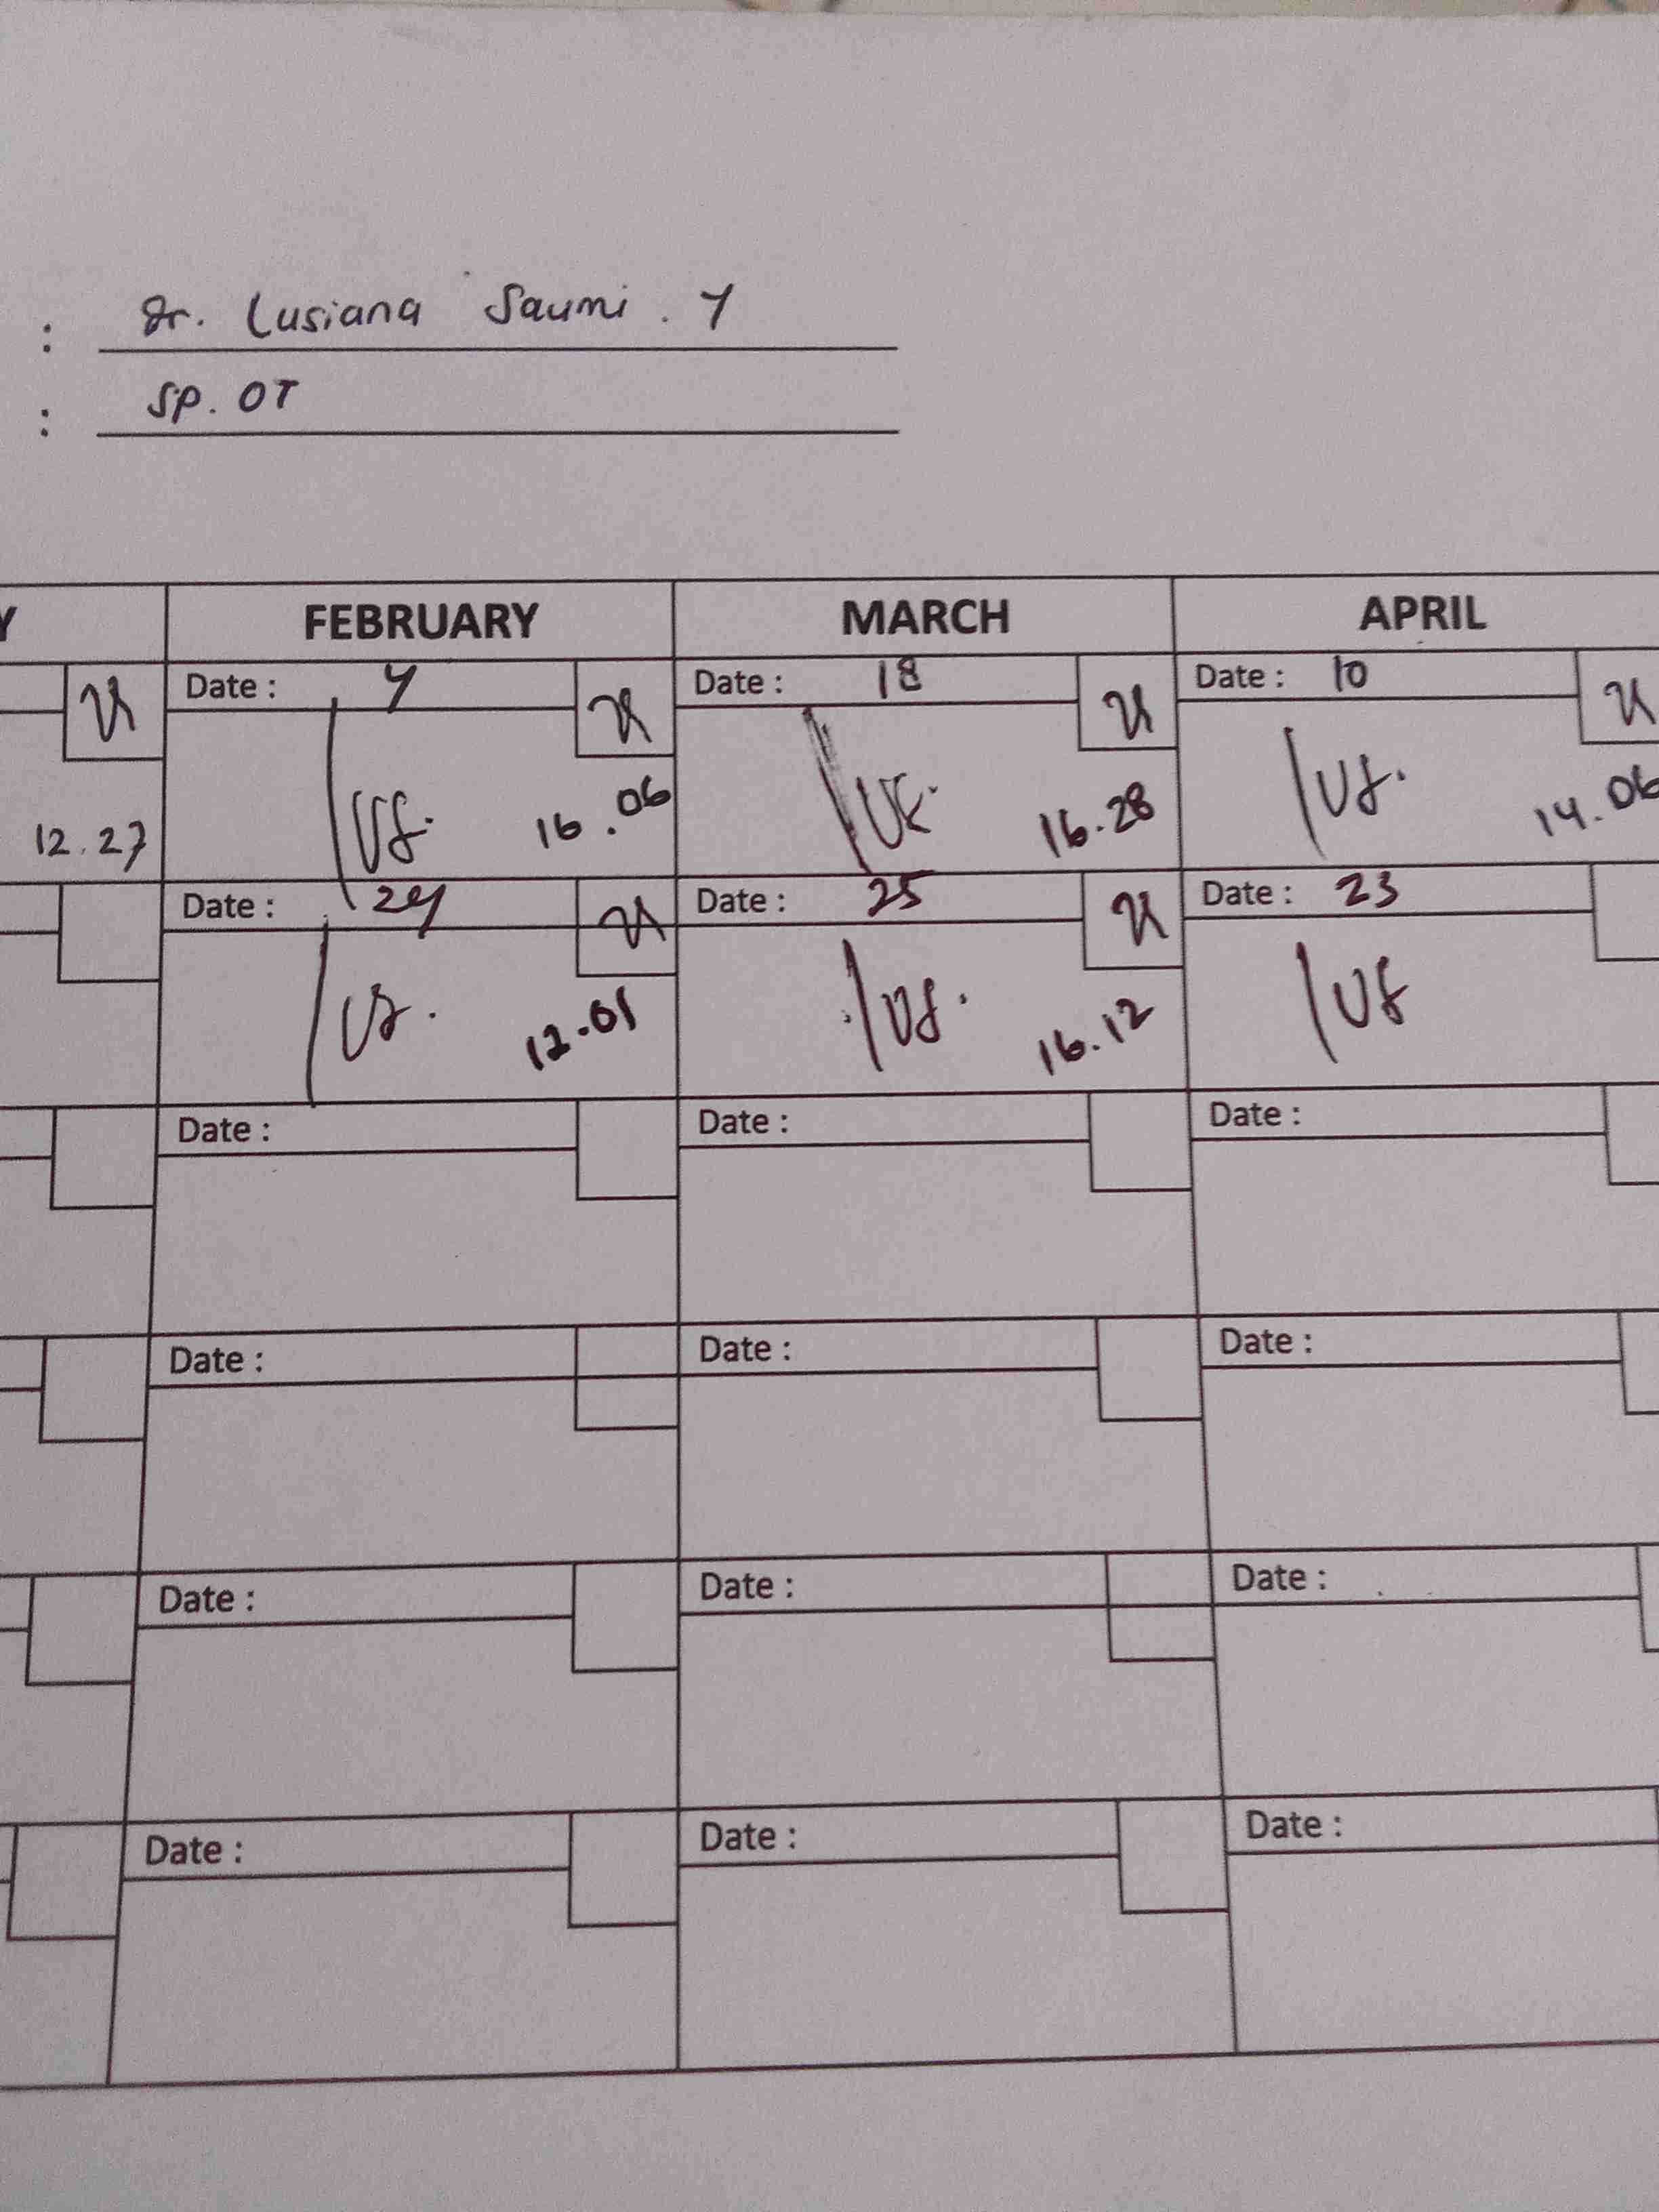 : dr. Lusiana Saumi. Y
: SP. OT
Y FEBRUARY MARCH APRIL
Date : 4 Date : 18 Date : 10
12.27 16.06 16.28 14.06
Date : 24 Date : 25 Date : 23
12.01 16.12
Date : Date : Date :
Date : Date : Date :
Date : Date : Date :
Date : Date : Date :